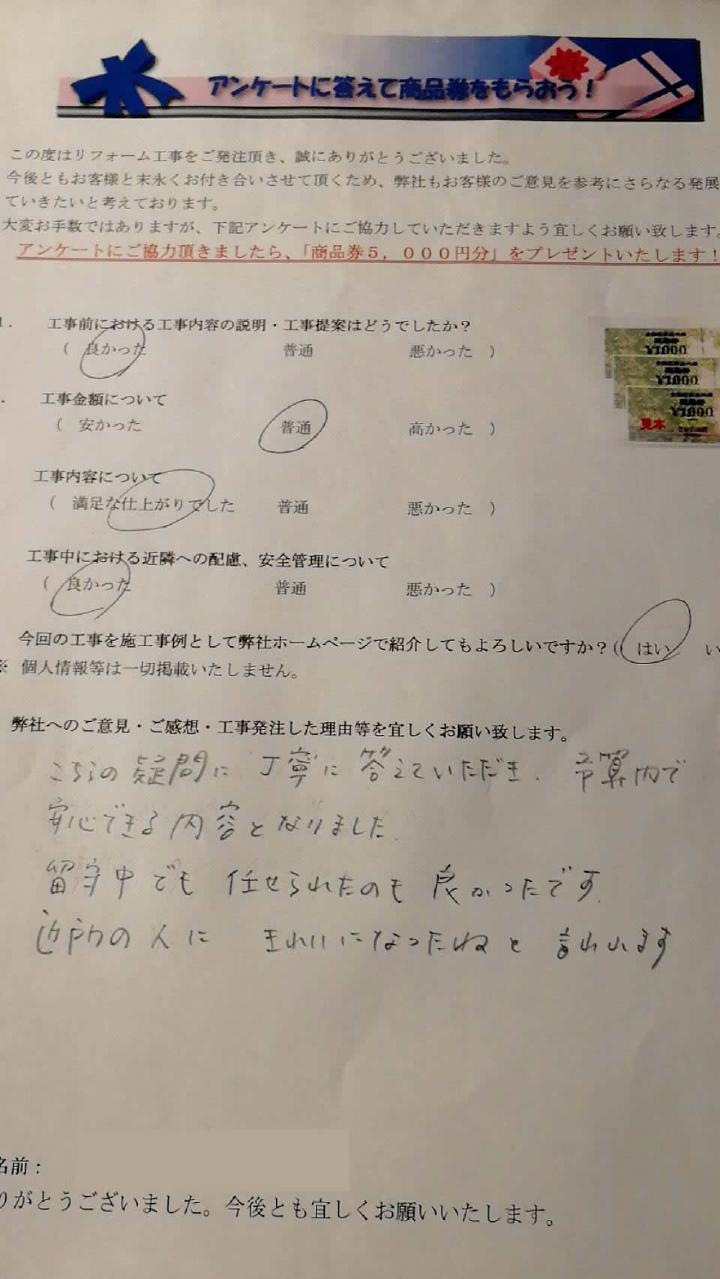 アンケートに答えて商品券をもらおう！
この度はリフォーム工事をご発注頂き、誠にありがとうございました。
今後ともお客様と末永くお付き合いさせて頂くため、弊社もお客様のご意見を参考にさらなる発展
ていきたいと考えております。
大変お手数ではありますが、下記アンケートにご協力していただきますよう宜しくお願い致します。
アンケートにご協力頂きましたら、「商品券５，０００円分」をプレゼントいたします！
1. 工事前における工事内容の説明・工事提案はどうでしたか？
（ 良かった 普通 悪かった ）
¥1,000
¥1,000
¥1,000
見本
. 工事金額について
（ 安かった 普通 高かった ）
工事内容について
（ 満足な仕上がりでした 普通 悪かった ）
工事中における近隣への配慮、安全管理について
（ 良かった 普通 悪かった ）
今回の工事を施工事例として弊社ホームページで紹介してもよろしいですか？（ はい い
※ 個人情報等は一切掲載いたしません。
弊社へのご意見・ご感想・工事発注した理由等を宜しくお願い致します。
こちらの疑問に 丁寧に 答えていただき、 予算内で
安心できる内容となりました。
留守中でも 任せられたのも 良かったです。
近所の人に きれいになったねと 言われます
名前：
りがとうございました。今後とも宜しくお願いいたします。